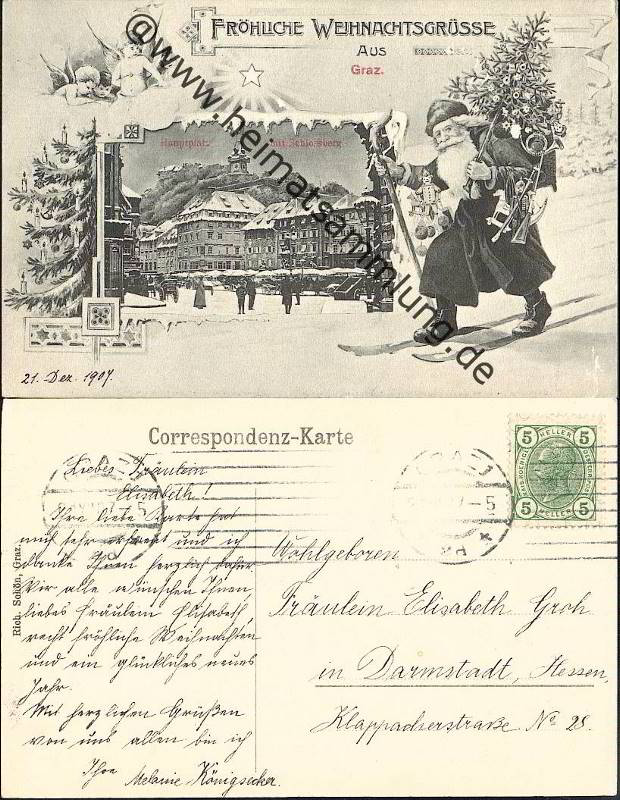 FRÖHLICHE WEIHNACHTSGRÜSSE
AUS
Graz.
Hauptplatz mit Schlossberg
@www.heimatsammlung.de
21. Dez. 1907.
Correspondenz-Karte
5 HELLER 5
5 HELLER 5
5
Rich. Schön, Graz.
Liebes Fräulein
Elisabeth!
Ihre liebe Karte hat
mich sehr erfreut und ich
danke Ihnen herzlich dafür
Wir alle wünschen Ihnen
liebes Fräulein Elisabeth
recht fröhliche Weihnachten
und ein glückliches neues
Jahr.
Mit herzlichen Grüßen
von uns allen bin ich
Ihre Melanie Königsecker.
Wohlgeboren
Fräulein Elisabeth Groh
in Darmstadt, Hessen,
Klappacherstraße No 28.